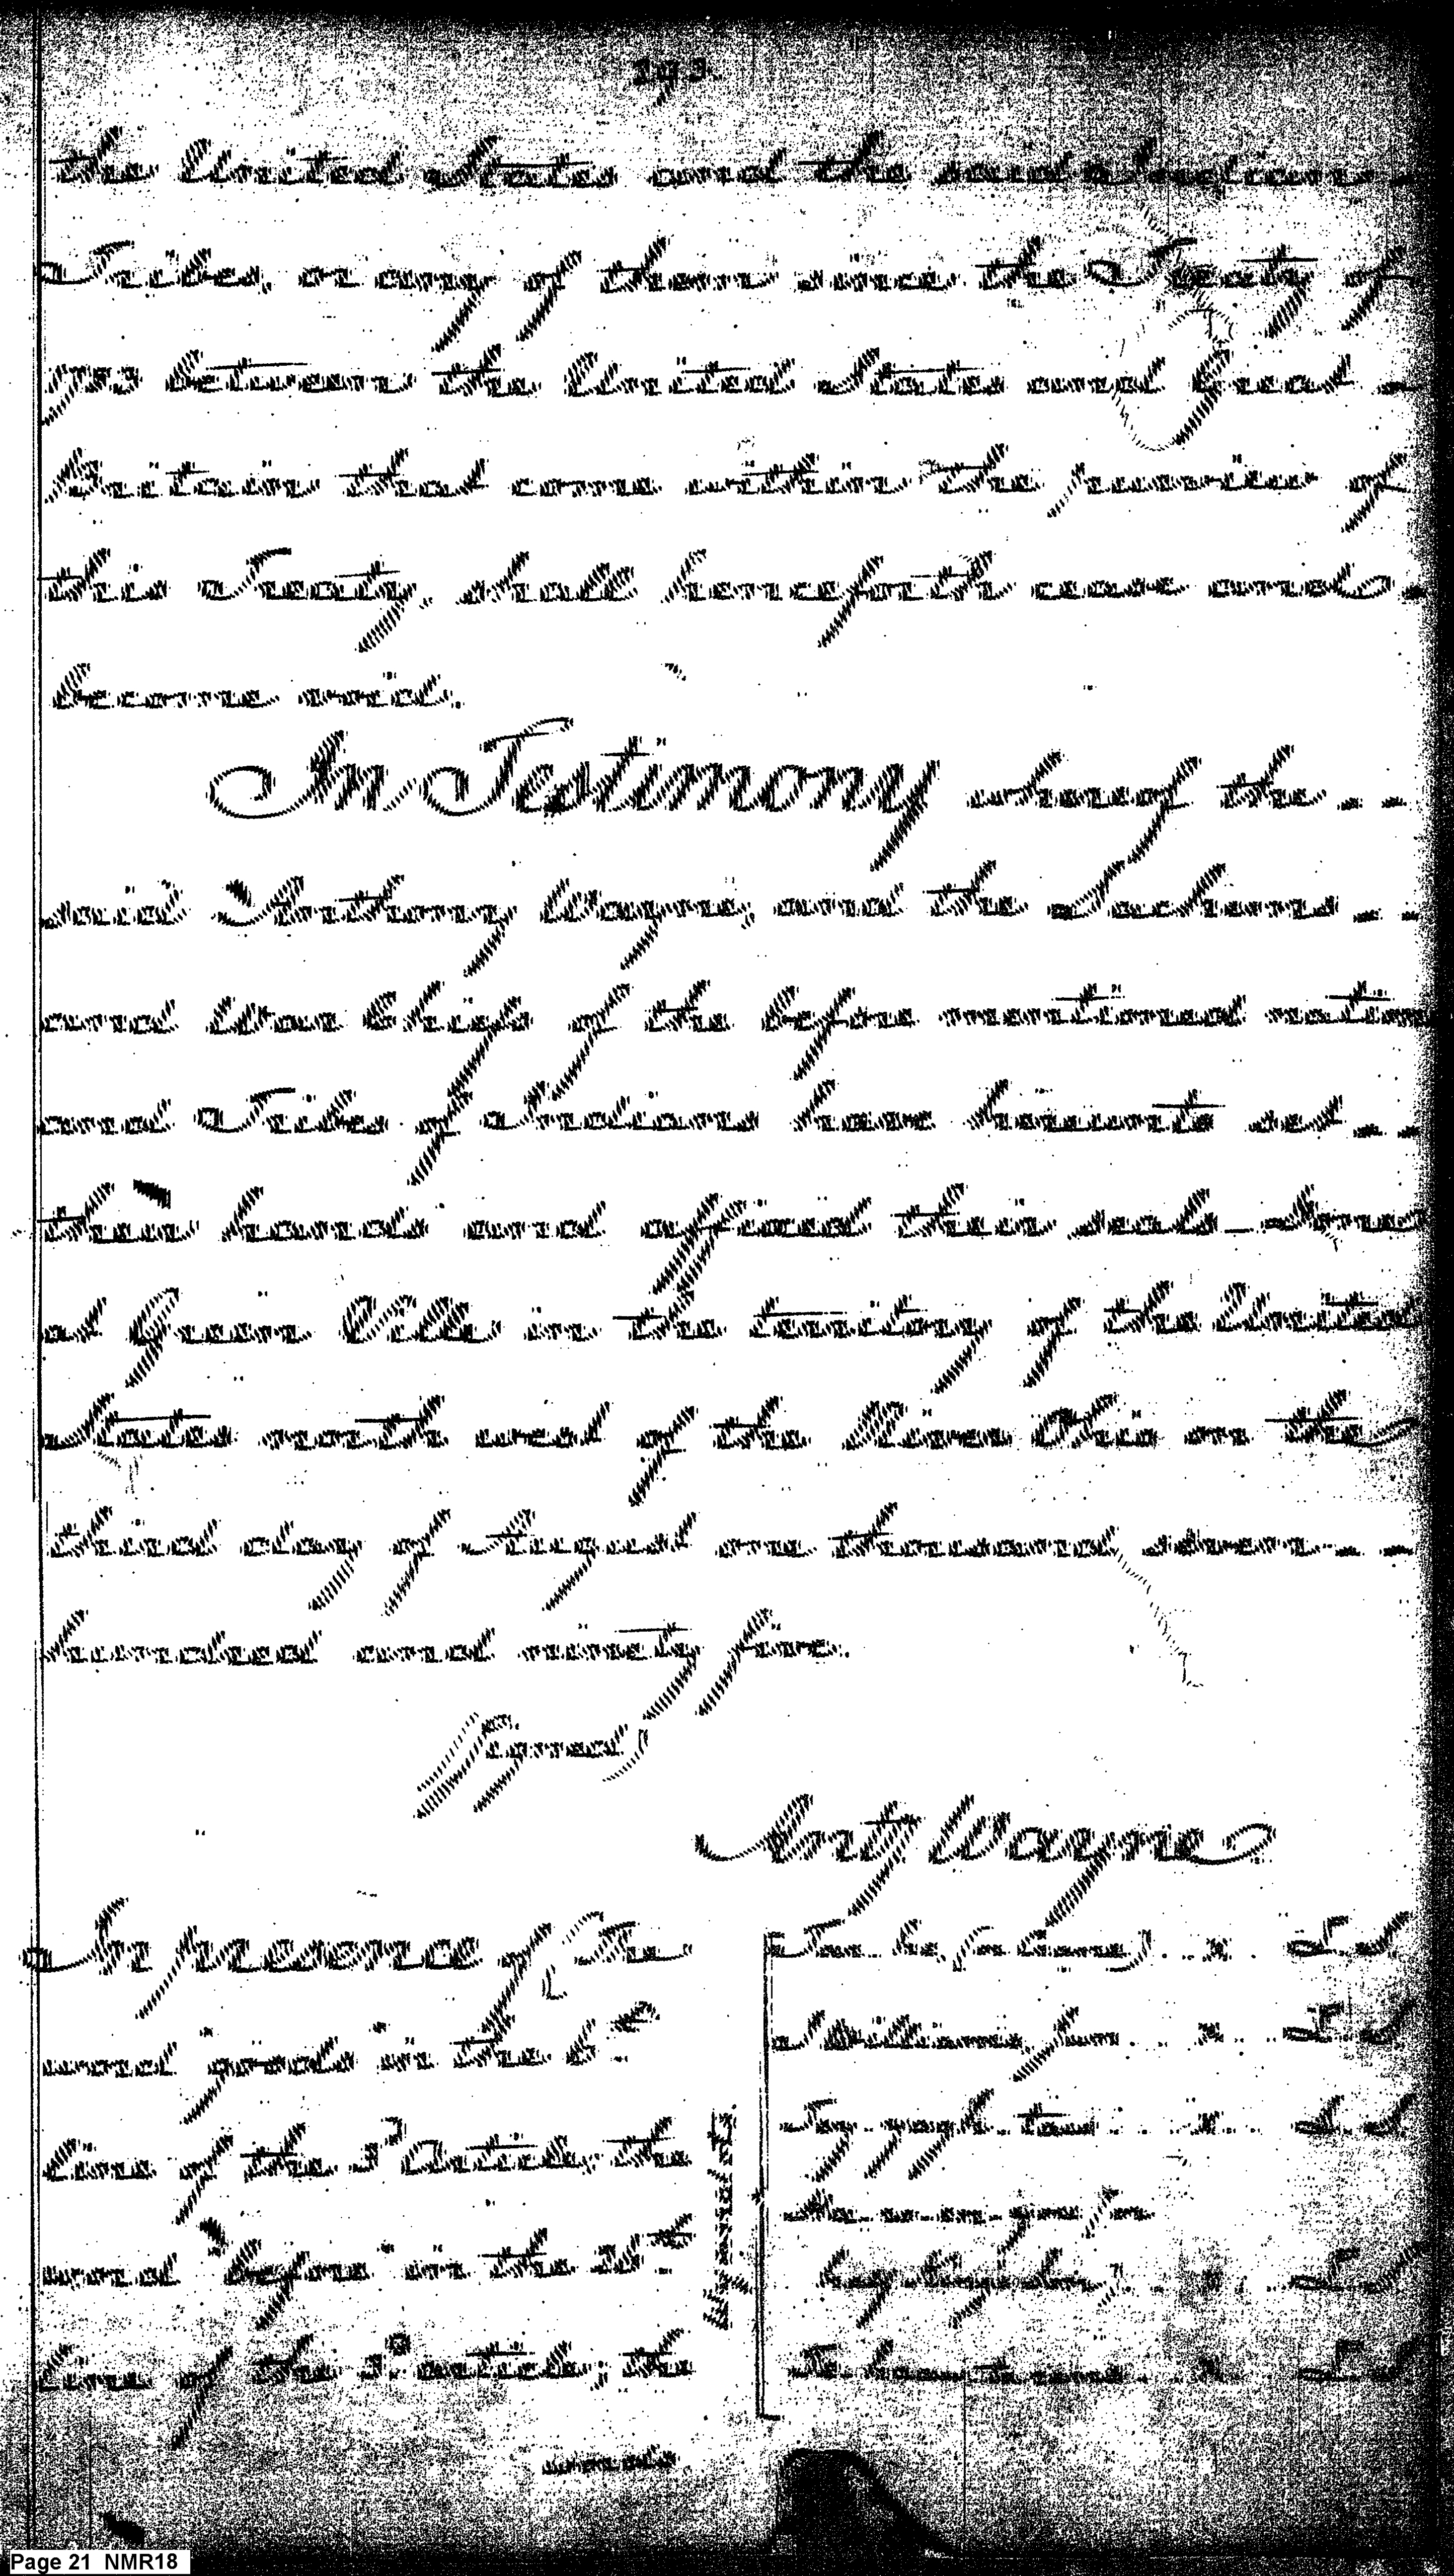 193
the United States and the said Indian
Tribes, or any of them since the Treaty of
1783 between the United States and Great
Britain that come within the purview of
this Treaty, shall henceforth cease and
become void.
In Testimony whereof the
said Anthony Wayne, and the Sachems
and War Chiefs of the before mentioned nations
and Tribes of Indians have hereunto set
their hands and affixed their seals. Done
at Green Ville in the territory of the United
States north west of the River Ohio on the
third day of August one thousand seven
hundred and ninety five.
(Signed)
Anty Wayne
In presence of (The
word goods in the 6th
line of the 3d article; the
word before in the 26th
line of the 3d article; the
words
Wyandots.
Tar. he, (or Crane) .. x .. L S
J Williams, Jun. .. x .. L S
Tey. yagh. taw .. x .. L S
Ha. ro. en. you (or
.. x .. L S
Te. haaw. to. rens .. x .. L S
Page 21 NMR18